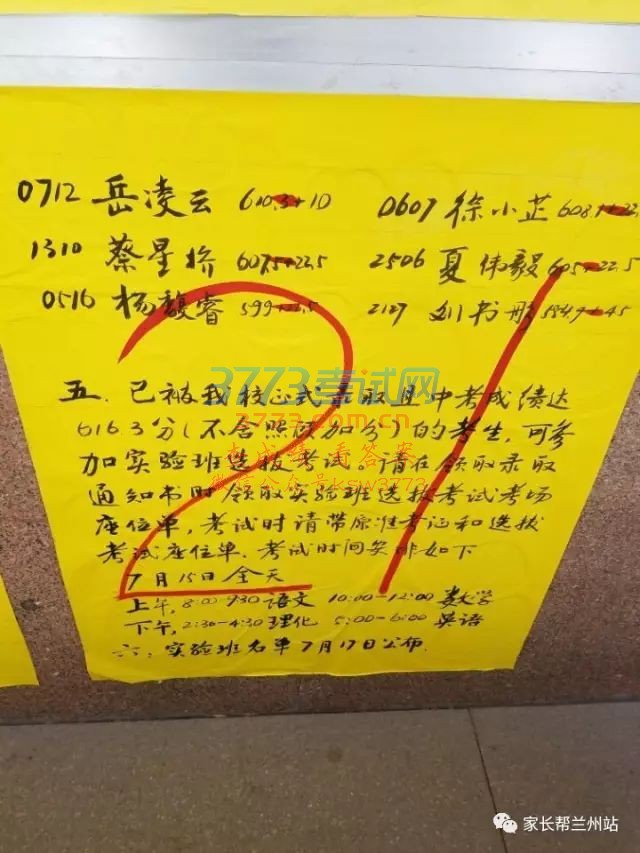 0712 岳凌云 610.3+10 0607 徐小芷
1310 蔡星桥 607.5+22.5 2506 夏伟毅 605+22.5
0516 杨馥睿 599+22.5 2127 刘书彤 584.9+45
21
五、已被我校正式录取且中考成绩达
616.3分(不含照顾加分)的考生,可参
加实验班选拔考试。请在领取录取
通知书时领取实验班选拔考试考场
座位单,考试时请带原准考证和选拔
考试座位单、考试时间安排如下
7月15日全天
上午,8:00-9:30 语文 10:00-12:00 数学
下午,2:30-4:30 理化 5:00-6:00 英语
六:实验班名单7月17日公布.
3773考试网
3773.com.cn
查成绩 看答案
微信公众号ksw3773
家长帮兰州站